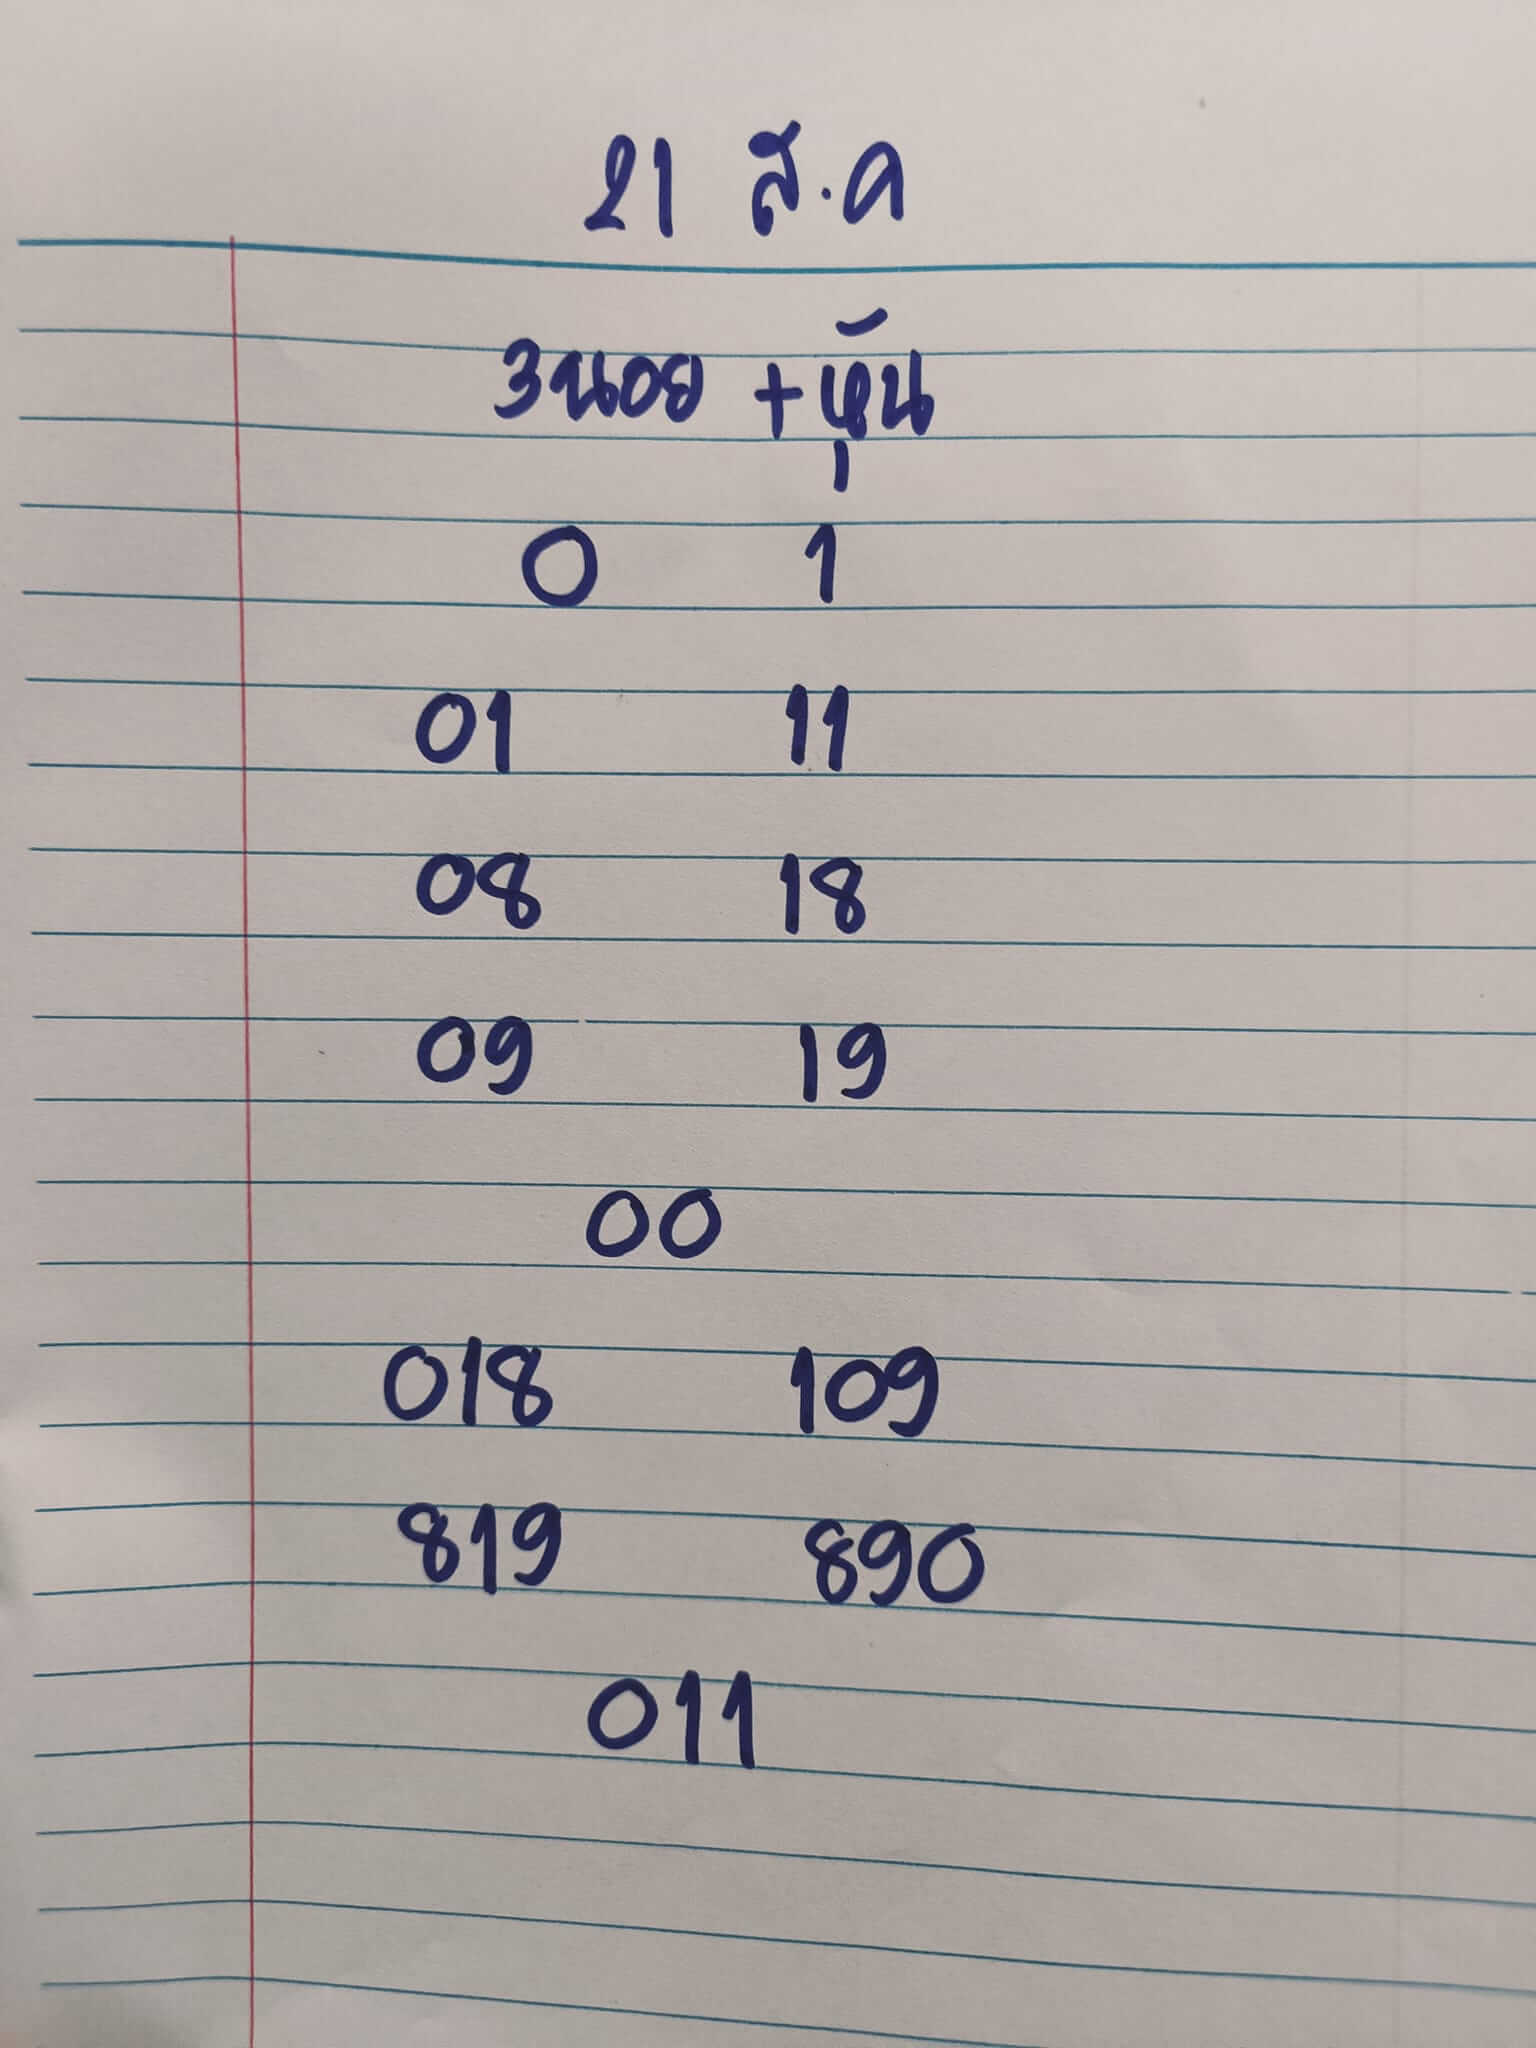 21 ส.ค
3นอย +หุ้น
0 1
01 11
08 18
09 19
00
018 109
819 890
011